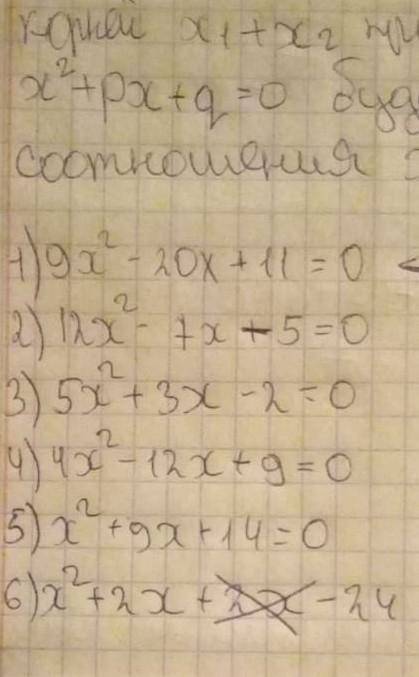 корней x₁+x₂ при
x²+px+q=0 буд
соотношения
1) 9x² - 20x + 11 = 0
2) 12x² - 7x - 5 = 0
3) 5x² + 3x - 2 = 0
4) 4x² - 12x + 9 = 0
5) x² + 9x + 14 = 0
6) x² + 2x + 2x - 24